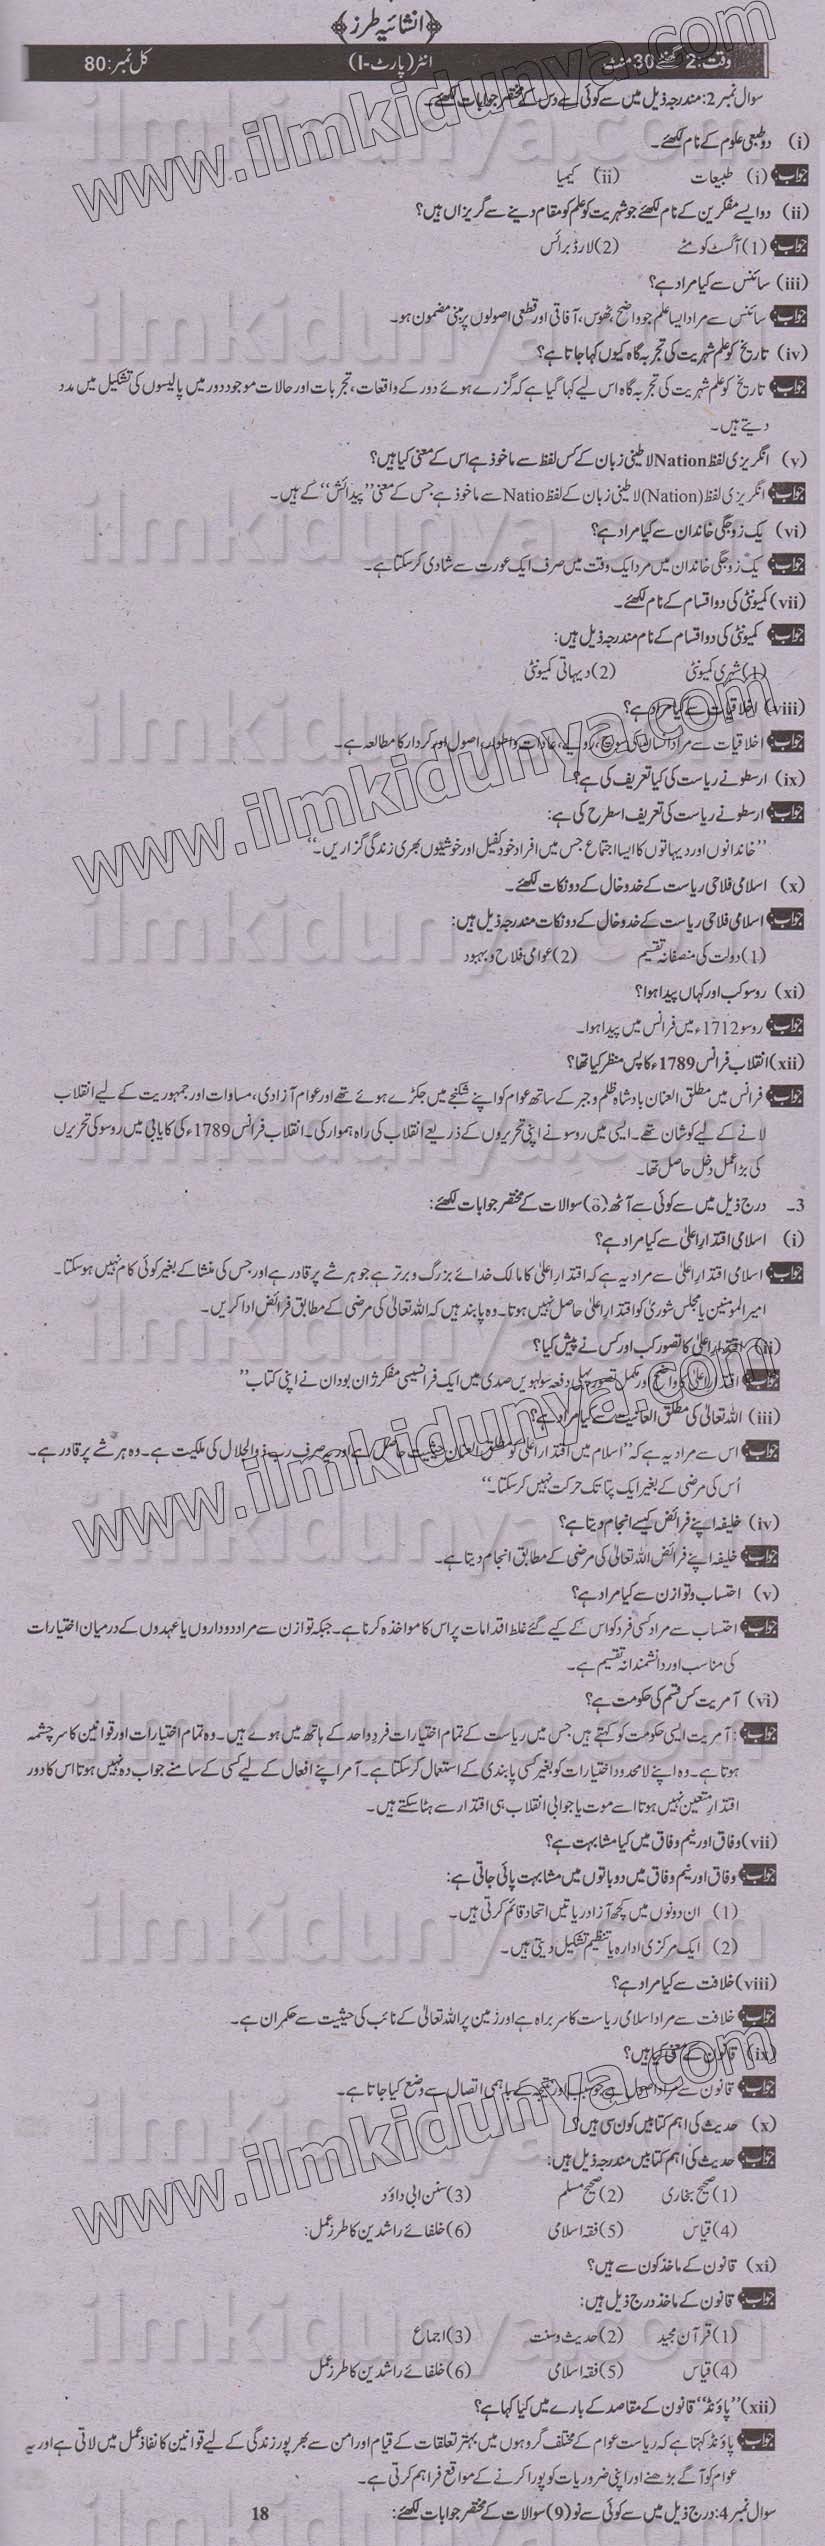 انشائیہ طرز
وقت: 2 گھنٹے 30 منٹ انٹر (پارٹ-I) کل نمبر: 80
سوال نمبر 2: مندرجہ ذیل میں سے کوئی سے دس کے مختصر جوابات لکھئے۔
(i) دو طبعی علوم کے نام لکھئے۔
جواب: (i) طبیعات (ii) کیمیا
(ii) دو ایسے مفکرین کے نام لکھئے جو شہریت کو علم کو مقام دینے سے گریزاں ہیں؟
جواب: (1) آگسٹ کومٹے (2) لارڈ برائس
(iii) سائنس سے کیا مراد ہے؟
جواب: سائنس سے مراد ایسا علم جو واضح، ٹھوس، آفاتی اور قطعی اصولوں پر مبنی مضمون ہو۔
(iv) تاریخ کو علم شہریت کی تجربہ گاہ کیوں کہا جاتا ہے؟
جواب: تاریخ کو علم شہریت کی تجربہ گاہ اس لیے کہا گیا ہے کہ گزرے ہوئے دور کے واقعات، تجربات اور حالات موجود دور میں پالیسوں کی تشکیل میں مدد
دیتے ہیں۔
(v) انگریزی لفظ Nation لاطینی زبان کے کس لفظ سے ماخوذ ہے اس کے معنی کیا ہیں؟
جواب: انگریزی لفظ (Nation) لاطینی زبان کے لفظ Natio سے ماخوذ ہے جس کے معنی ''پیدائش'' کے ہیں۔
(vi) یک زوجگی خاندان سے کیا مراد ہے؟
جواب: یک زوجگی خاندان میں مرد ایک وقت میں صرف ایک عورت سے شادی کر سکتا ہے۔
(vii) کمیونٹی کی دو اقسام کے نام لکھئے۔
جواب: کمیونٹی کی دو اقسام کے نام مندرجہ ذیل ہیں:
(1) شہری کمیونٹی (2) دیہاتی کمیونٹی
(viii) اخلاقیات سے کیا مراد ہے؟
جواب: اخلاقیات سے مراد انسان کی سوچ، رویے، عادات و اطوار، اصول اور کردار کا مطالعہ ہے۔
(ix) ارسطو نے ریاست کی کیا تعریف کی ہے؟
جواب: ارسطو نے ریاست کی تعریف اسطرح کی ہے:
''خاندانوں اور دیہاتوں کا ایسا اجتماع جس میں افراد خود کفیل اور خوشیوں بھری زندگی گزاریں۔''
(x) اسلامی فلاحی ریاست کے خدوخال کے دو نکات لکھئے۔
جواب: اسلامی فلاحی ریاست کے خدوخال کے دو نکات مندرجہ ذیل ہیں:
(1) دولت کی منصفانہ تقسیم (2) عوامی فلاح و بہبود
(xi) روسو کب اور کہاں پیدا ہوا؟
جواب: روسو 1712ء میں فرانس میں پیدا ہوا۔
(xii) انقلاب فرانس 1789ء کا پس منظر کیا تھا؟
جواب: فرانس میں مطلق العنان بادشاہ ظلم و جبر کے ساتھ عوام کو اپنے شکنجے میں جکڑے ہوئے تھے اور عوام آزادی، مساوات اور جمہوریت کے لیے انقلاب
لانے کے لیے کوشاں تھے۔ ایسی میں روسو نے اپنی تحریروں کے ذریعے انقلاب کی راہ ہموار کی۔ انقلاب فرانس 1789ء کی کایابی میں روسو کی تحریریں
کی بڑا عمل دخل حاصل تھا۔
3۔ درج ذیل میں سے کوئی سے آٹھ سوالات کے مختصر جوابات لکھئے:
(i) اسلامی اقتدارِ اعلیٰ سے کیا مراد ہے؟
جواب: اسلامی اقتدارِ اعلیٰ سے مراد یہ ہے کہ اقتدارِ اعلیٰ کا مالک خدائے بزرگ و برتر ہے جو ہر شے پر قادر ہے اور جس کی منشا کے بغیر کوئی کام نہیں ہو سکتا۔
امیر المومنین یا مجلس شوریٰ کو اقتدارِ اعلیٰ حاصل نہیں ہوتا۔ وہ پابند ہیں کہ اللہ تعالیٰ کی مرضی کے مطابق فرائض ادا کریں۔
(ii) اقتدارِ اعلیٰ کا تصور کب اور کس نے پیش کیا؟
جواب: اقتدارِ اعلیٰ کا واضح اور مکمل تصور پہلی دفعہ سولہویں صدی میں ایک فرانسیسی مفکر ژان بودان نے اپنی کتاب''
(iii) اللہ تعالیٰ کی مطلق العانیت سے کیا مراد ہے؟
جواب: اس سے مراد یہ ہے کہ ''اسلام میں اقتدارِ اعلیٰ کو مطلق العنان حیثیت حاصل ہے اور یہ صرف رب ذوالجلال کی ملکیت ہے۔ وہ ہر شے پر قادر ہے۔
اُس کی مرضی کے بغیر ایک پتا تک حرکت نہیں کر سکتا۔''
(iv) خلیفہ اپنے فرائض کیسے انجام دیتا ہے؟
جواب: خلیفہ اپنے فرائض اللہ تعالیٰ کی مرضی کے مطابق انجام دیتا ہے۔
(v) احتساب و توازن سے کیا مراد ہے؟
جواب: احتساب سے مراد کسی فرد کو اس کے کیے گئے غلط اقدامات پر اس کا مواخذہ کرنا ہے۔ جبکہ توازن سے مراد دو داروں یا عہدوں کے درمیان اختیارات
کی مناسب اور دانشمندانہ تقسیم ہے۔
(vi) آمریت کس قسم کی حکومت ہے؟
جواب: آمریت ایسی حکومت کو کہتے ہیں جس میں ریاست کے تمام اختیارات فردِ واحد کے ہاتھ میں ہوے ہیں۔ وہ تمام اختیارات اور قوانین کا سرچشمہ
ہوتا ہے۔ وہ اپنے لا محدود اختیارات کو بغیر کسی پابندی کے استعمال کر سکتا ہے۔ آمر اپنے افعال کے لیے کسی کے سامنے جواب دہ نہیں ہوتا اس کا دور
اقتدار متعین نہیں ہوتا اسے موت یا جوابی انقلاب ہی اقتدار سے ہٹا سکتے ہیں۔
(vii) وفاق اور نیم وفاق میں کیا مشابہت ہے؟
جواب: وفاق اور نیم وفاق میں دو باتوں میں مشابہت پائی جاتی ہے:
(1) ان دونوں میں کچھ آزاد ریاتیں اتحاد قائم کرتی ہیں۔
(2) ایک مرکزی ادارہ یا تنظیم تشکیل دیتی ہیں۔
(viii) خلافت سے کیا مراد ہے؟
جواب: خلافت سے مراد اسلامی ریاست کا سربراہ ہے اور زمین پر اللہ تعالیٰ کے نائب کی حیثیت سے حکمران ہے۔
(ix) قانون کے معنی کیا ہیں؟
جواب: قانون سے مراد اصول ہے جو سبب اور نتیجہ کے باہمی اتصال سے وضع کیا جاتا ہے۔
(x) حدیث کی اہم کتابیں کون سی ہیں؟
جواب: حدیث کی اہم کتابیں مندرجہ ذیل ہیں:
(1) صحیح بخاری (2) صحیح مسلم (3) سنن ابی داؤد
(4) قیاس (5) فقہ اسلامی (6) خلفائے راشدین کا طرزِ عمل:
(xi) قانون کے ماخذ کون سے ہیں؟
جواب: قانون کے ماخذ درج ذیل ہیں:
(1) قرآن مجید (2) حدیث و سنت (3) اجماع
(4) قیاس (5) فقہ اسلامی (6) خلفائے راشدین کا طرزِ عمل
(xii) ''پاؤنڈ'' قانون کے مقاصد کے بارے میں کیا کہا ہے؟
جواب: پاؤنڈ کہتا ہے کہ ریاست عوام کے مختلف گروہوں میں بہتر تعلقات کے قیام اور امن سے بھرپور زندگی کے لیے قوانین کا نفاذ عمل میں لاتی ہے اور یہ
عوام کو آگے بڑھنے اور اپنی ضروریات کو پورا کرنے کے مواقع فراہم کرتی ہے۔
سوال نمبر 4: درج ذیل میں سے کوئی سے نو (9) سوالات کے مختصر جوابات لکھئے: 18
www.ilmkidunya.com